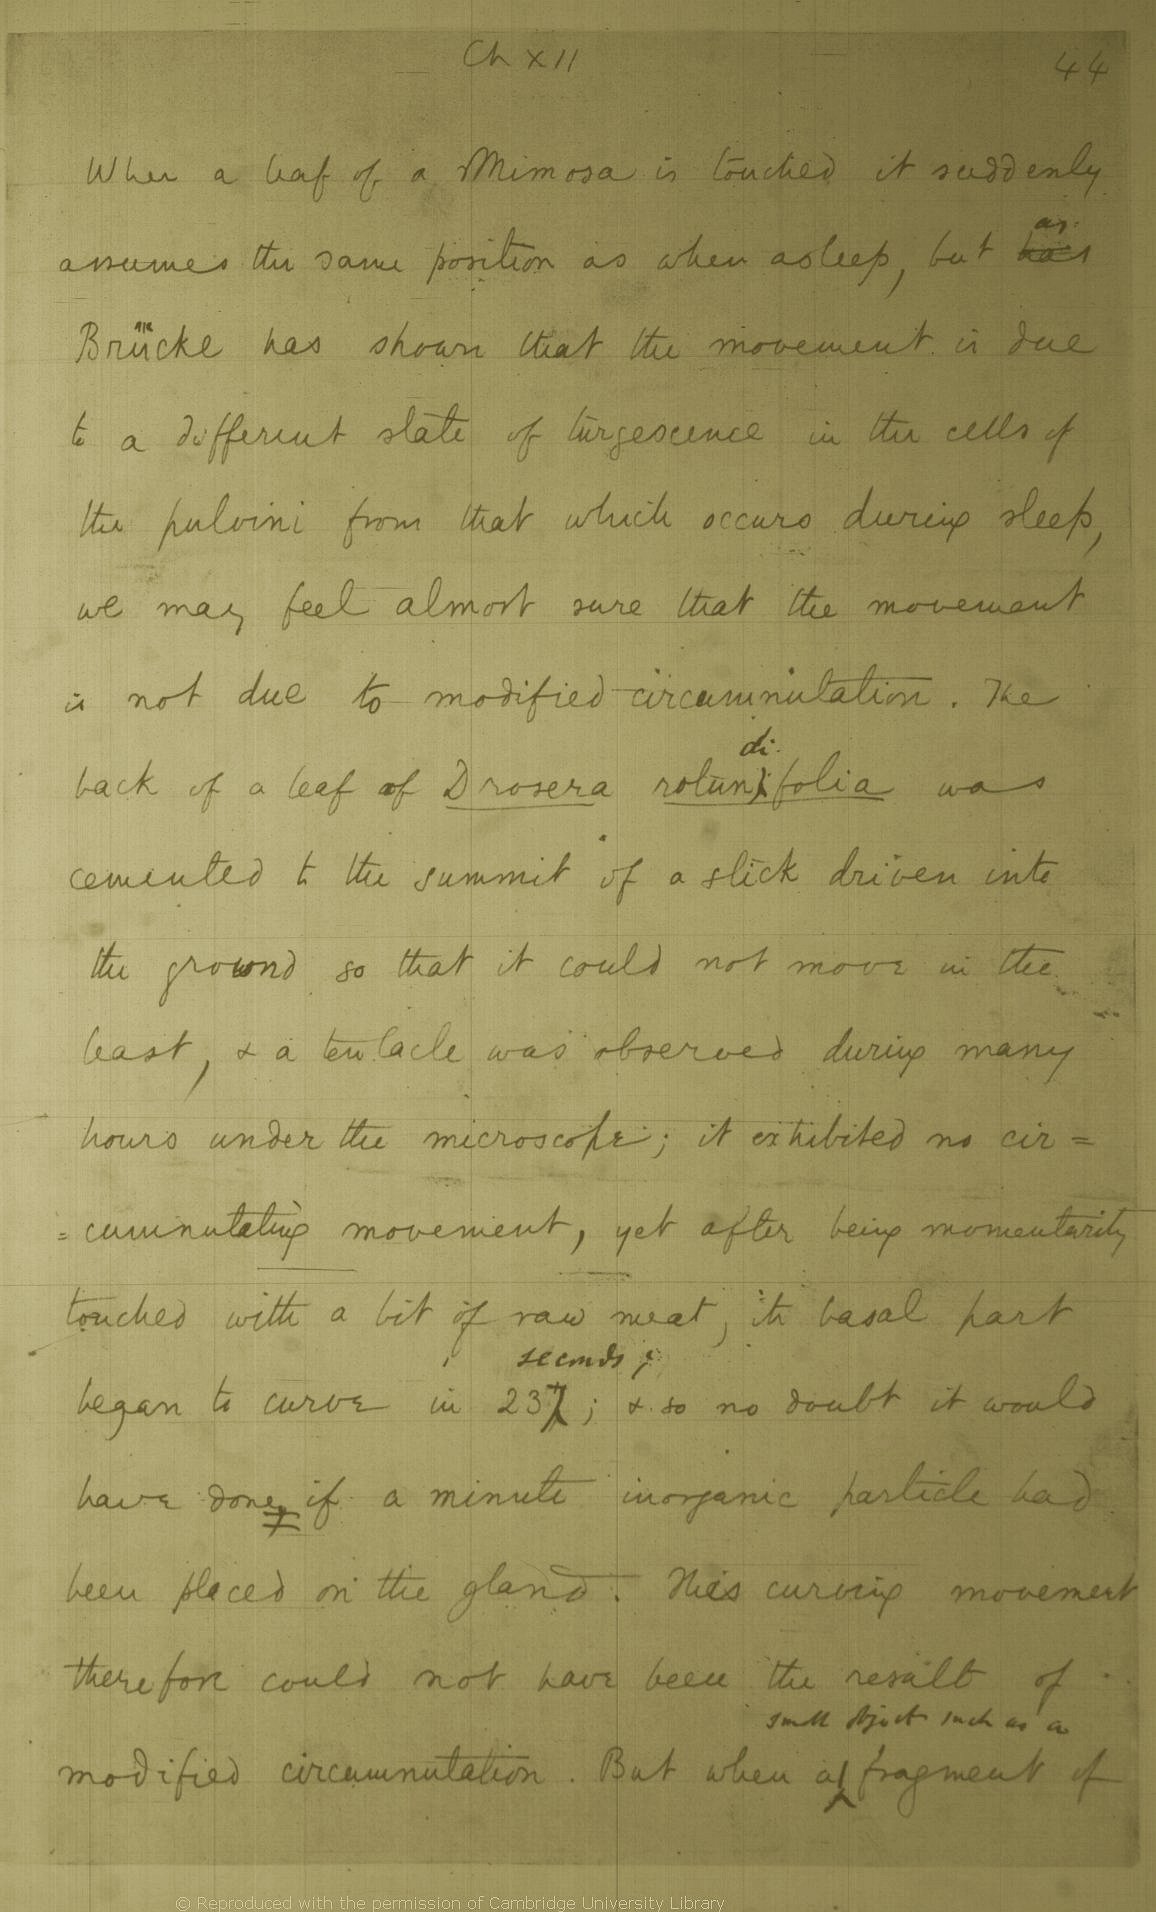 Ch XII 44
When a leaf of a Mimosa is touched it suddenly
as
assumes the same position as when asleep, but has
Brücke has shown that the movement is due
to a different state of turgescence in the cells of
the pulvini from that which occurs during sleep,
we may feel almost sure that the movement
is not due to modified circumnutation. The
di
back of a leaf of Drosera rotunifolia was
cemented to the summit of a stick driven into
the ground so that it could not move in the
least, & a tentacle was observed during many
hours under the microscope; it exhibited no cir=
=cumnutating movement, yet after being momentarily
touched with a bit of raw meat, its basal part
seconds;
began to curve in 23; & so no doubt it would
have done, if a minute inorganic particle had
been placed on the gland. This curving movement
therefore could not have been the result of
small object such as a
modified circumnutation. But when a fragment of
© Reproduced with the permission of Cambridge University Library